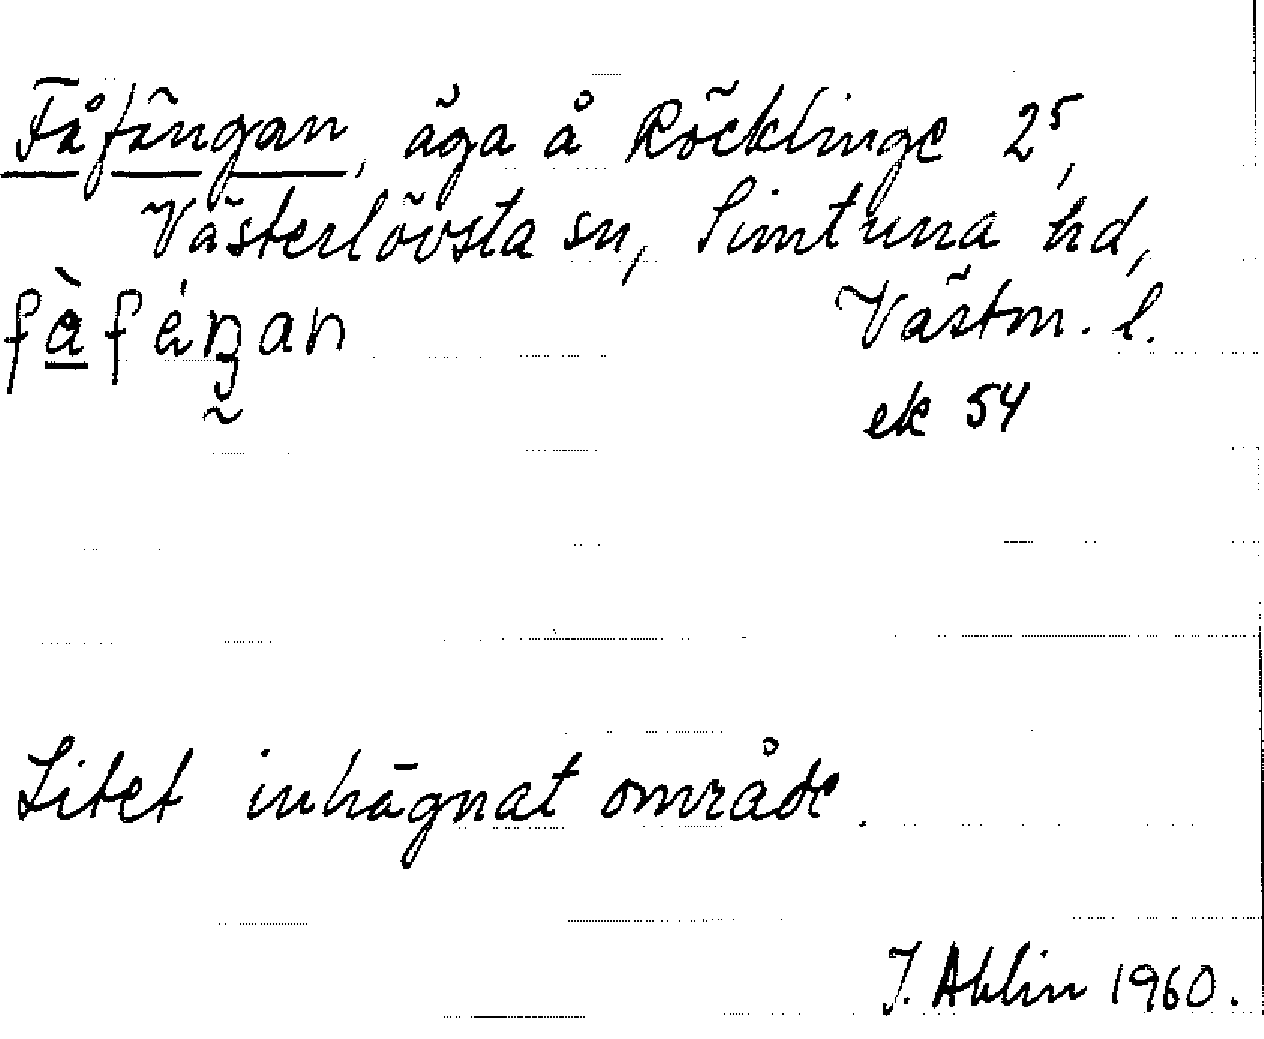 Fåfängan, äga å Röcklinge 2⁵,
Västerlövsta sn, Simtuna hd,
Västm. l.
ek 54
Litet inhägnat område.
J. Ahlin 1960.